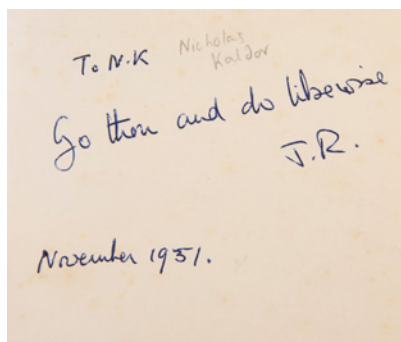 To N.K
Nicholas
Kaldor
Go thou and do likewise
J.R.
November 1951.